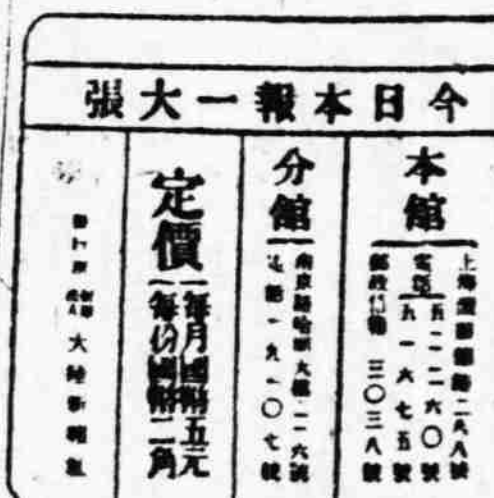 今日本報一大張
本館
上海 路二八八號
電話
九一六七五號
郵政信箱 三〇三八號
分館
南京路哈同大樓 一六號
電話一九一〇七號
定價
每月國幣五元
每份國幣二角
大陸新報社